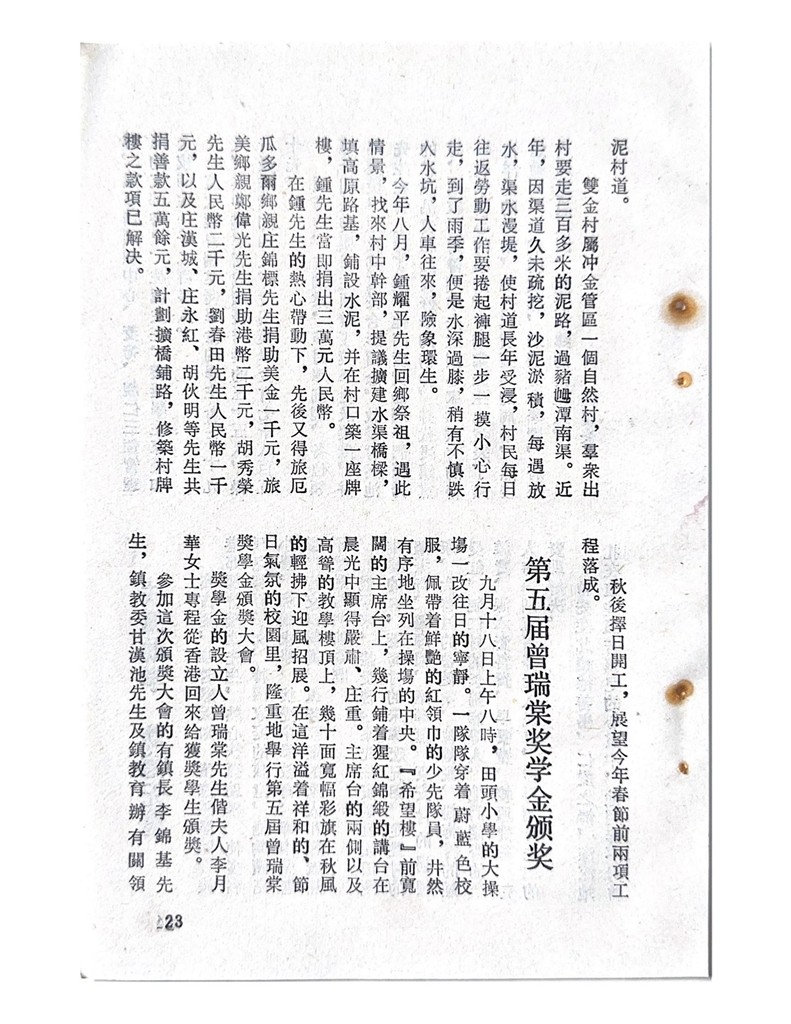 泥村道。
雙金村屬冲金管區一個自然村，羣衆出
村要走三百多米的泥路，過豬乸潭南渠。近
年，因渠道久未疏挖，沙泥淤積，每遇放
水，渠水漫堤，使村道長年受浸，村民每日
往返勞動工作要捲起褲腿一步一摸小心行
走，到了雨季，便是水深過膝，稍有不慎跌
入水坑，人車往來，險象環生。
今年八月，鍾耀平先生回鄉祭祖，遇此
情景，找來村中幹部，提議擴建水渠橋樑，
填高原路基，鋪設水泥，并在村口築一座牌
樓，鍾先生當即捐出三萬元人民幣。
在鍾先生的熱心帶動下，先後又得旅厄
瓜多爾鄉親庄錦標先生捐助美金一千元，旅
美鄉親鄭偉光先生捐助港幣二千元，胡秀榮
先生人民幣二千元，劉春田先生人民幣一千
元，以及庄漢城、庄永紅、胡伙明等先生共
捐善款五萬餘元，計劃擴橋鋪路，修築村牌
樓之款項已解决。
秋後擇日開工，展望今年春節前兩項工
程落成。
第五届曾瑞棠奖学金颁奖
九月十八日上午八時，田頭小學的大操
塲一改往日的寧靜。一隊隊穿着蔚藍色校
服，佩帶着鮮艷的紅領巾的少先隊員，井然
有序地坐列在操塲的中央。『希望樓』前寬
闊的主席台上，幾行鋪着猩紅錦緞的講台在
晨光中顯得嚴肅、庄重。主席台的兩側以及
高聳的教學樓頂上，幾十面寬幅彩旗在秋風
的輕拂下迎風招展。在這洋溢着祥和的、節
日氣氛的校園里，隆重地舉行第五屆曾瑞棠
獎學金頒獎大會。
獎學金的設立人曾瑞棠先生偕夫人李月
華女士專程從香港回來給獲獎學生頒獎。
參加這次頒獎大會的有鎮長李錦基先
生，鎮教委甘漢池先生及鎮教育辦有關領
23